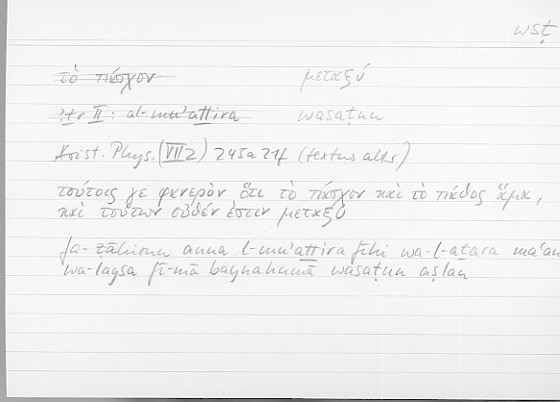 wsṭ
τὸ πάσχον μεταξύ
ʾṯr II: al-muʾaṯṯira wasaṭun
Arist. Phys. (VII 2) 245a21f (textus alter)
τούτοις γε φανερὸν ὅτι τὸ πάσχον καὶ τὸ πάθος ἅμα,
καὶ τούτων οὐθέν ἐστιν μεταξύ
fa-ẓāhirun anna l-muʾaṯṯira fīhi wa-l-aṯara maʿan
wa-laysa fī-mā baynahumā wasaṭun aṣlan